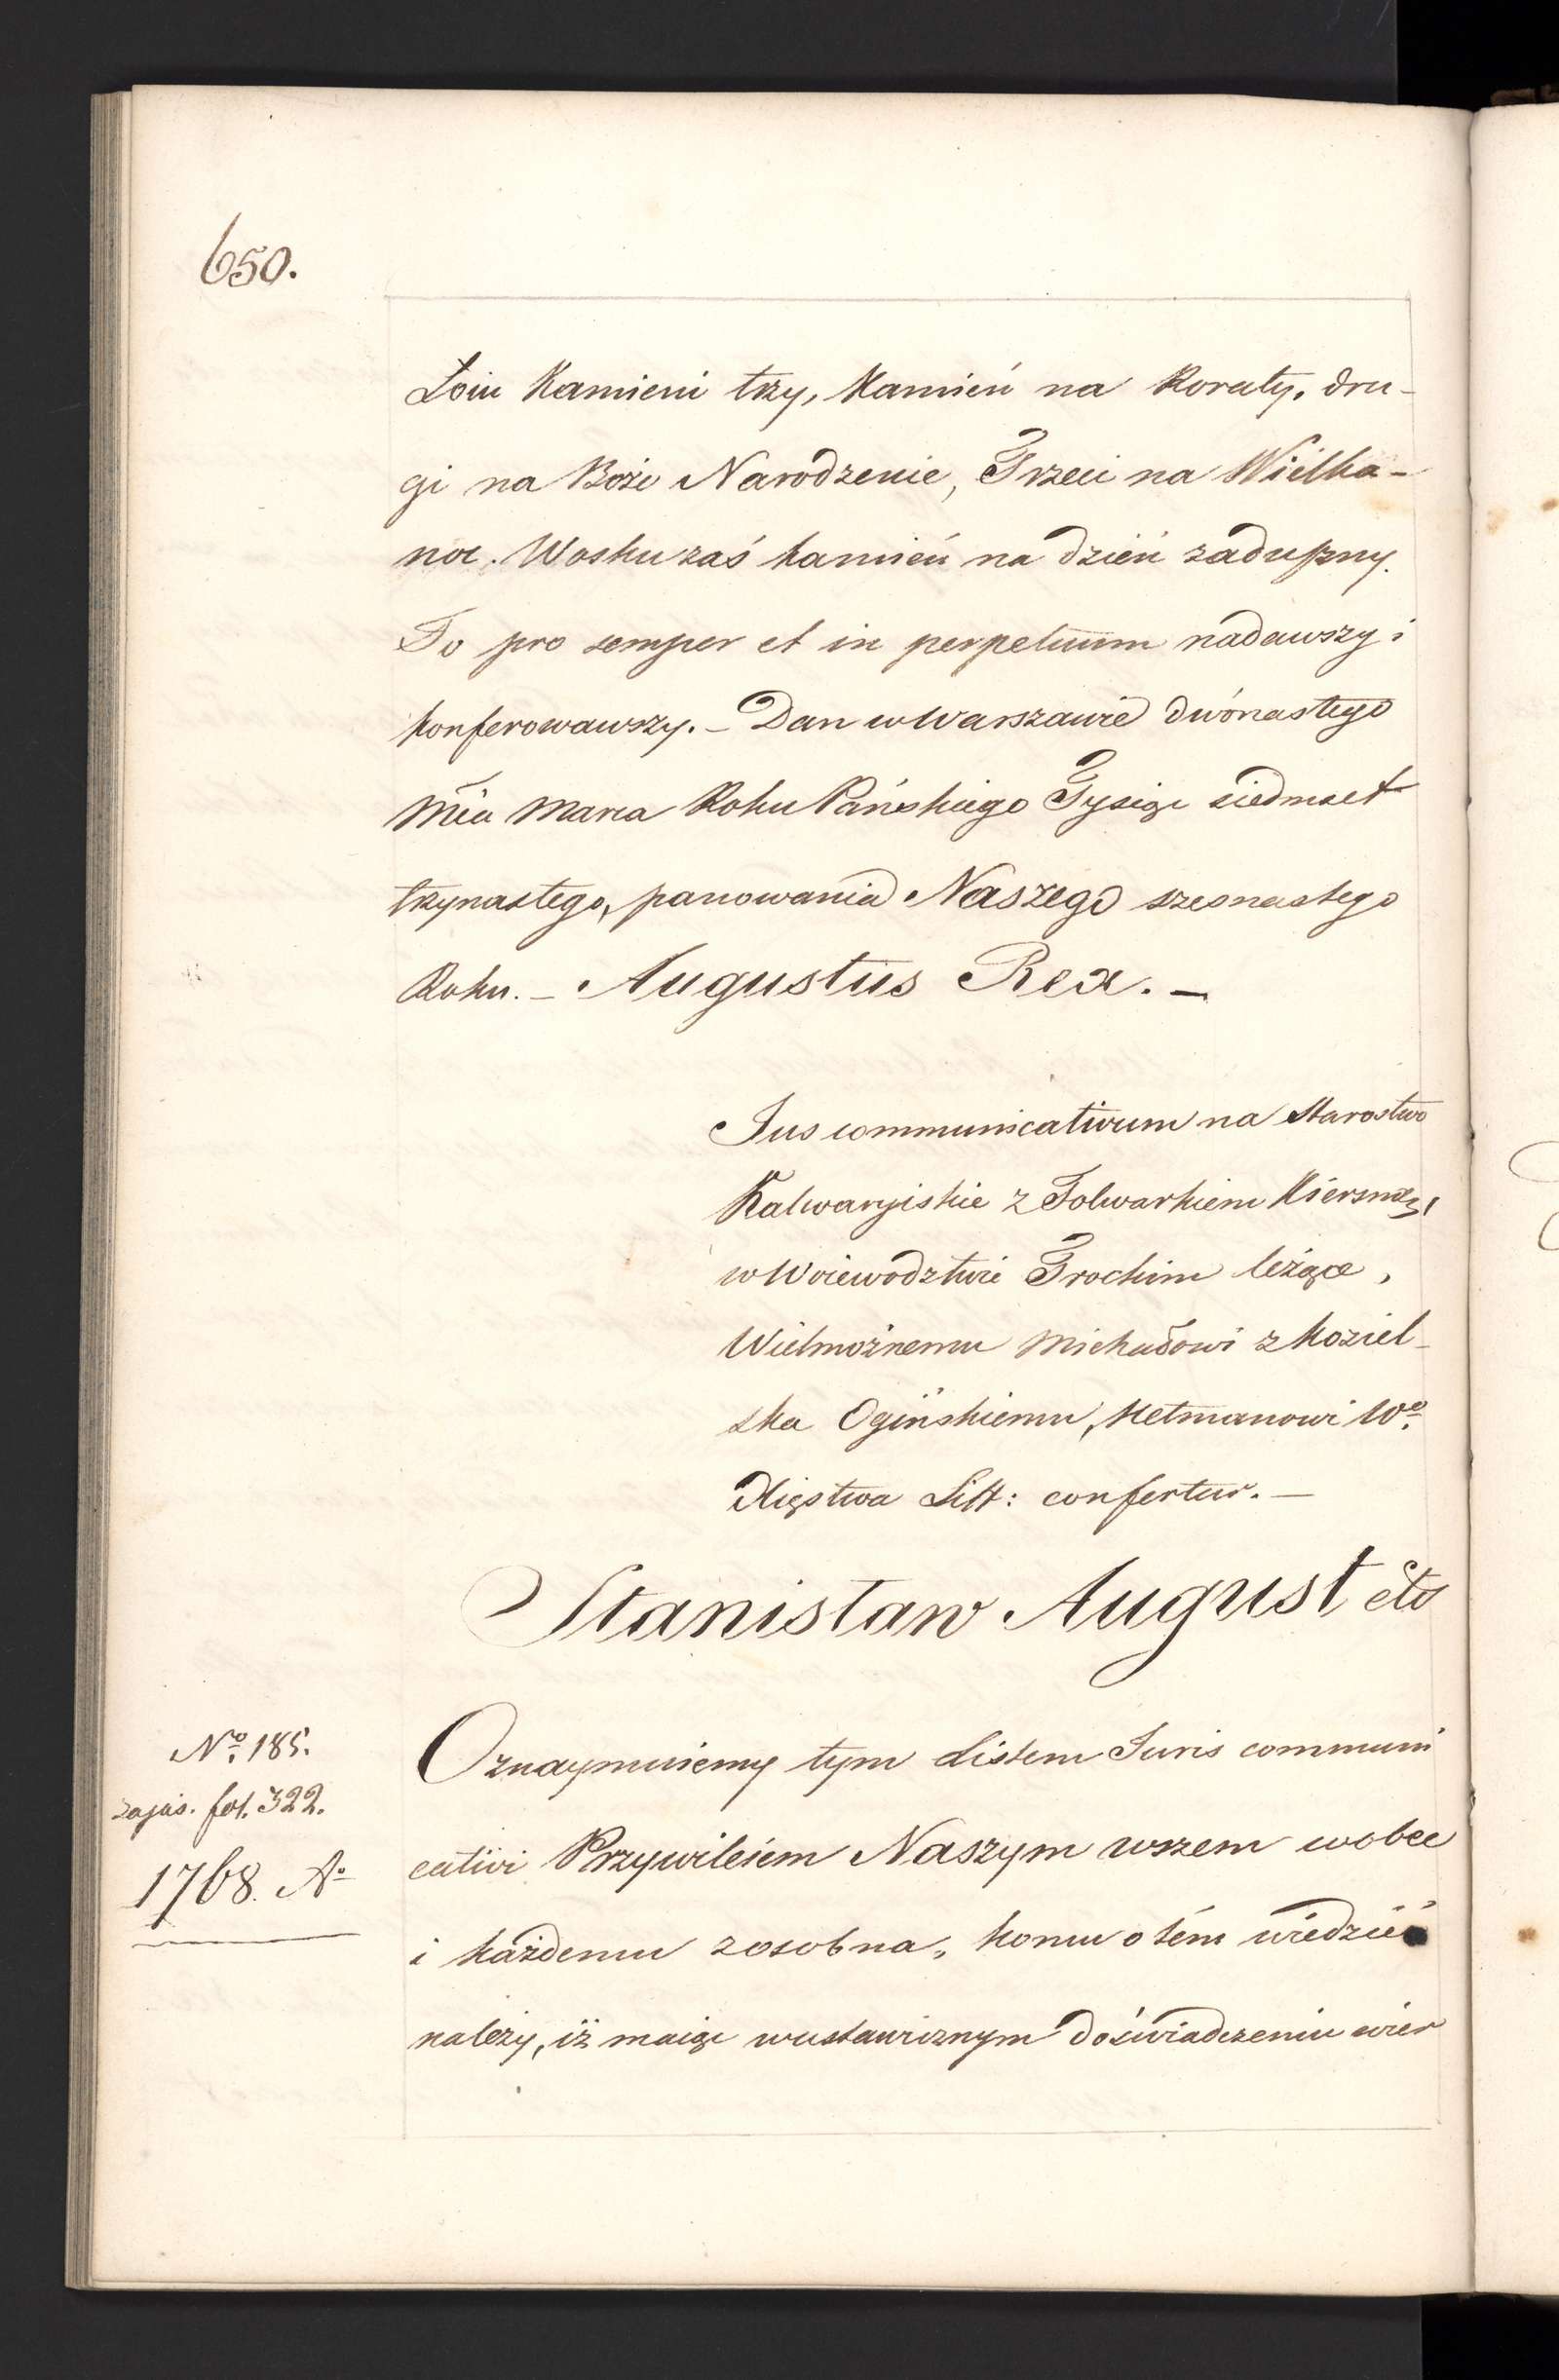 650.
Łoiu Kamieni trzy, Kamień na Roraty, dru-
gi na Boże Narodzenie, Trzeci na Wielka-
noc. Wosku zaś kamień na dzień zaduszny.
To pro semper et in perpetuum nadawszy i
konferowawszy. – Dan w Warszawie dwónastego
Mca Marca Roku Pańskiego Tysiąc siedmset
trzynastego, panowania Naszego szesnastego
Roku. – Augustus Rex. –
Jus communicativum na Starostwo
Kalwaryiskie z Folwarkiem
w Woiewodztwie Trockim leżące,
Wielmożnemu Michałowi z Koziel-
ska Ogińskiemu, Hetmanowi Wo
Xięstwa Litt: confertur. –
Stanisław August etc
No 185.
fol. 322.
1768. Ao
Oznaymuiemy tym Listem Juris communi
cativi Przywileiem Naszym wszem wobec
i każdemu zosobna, komu o tém wiedzieć
należy, iż maiąc wustawicznym doświadczeniu wier